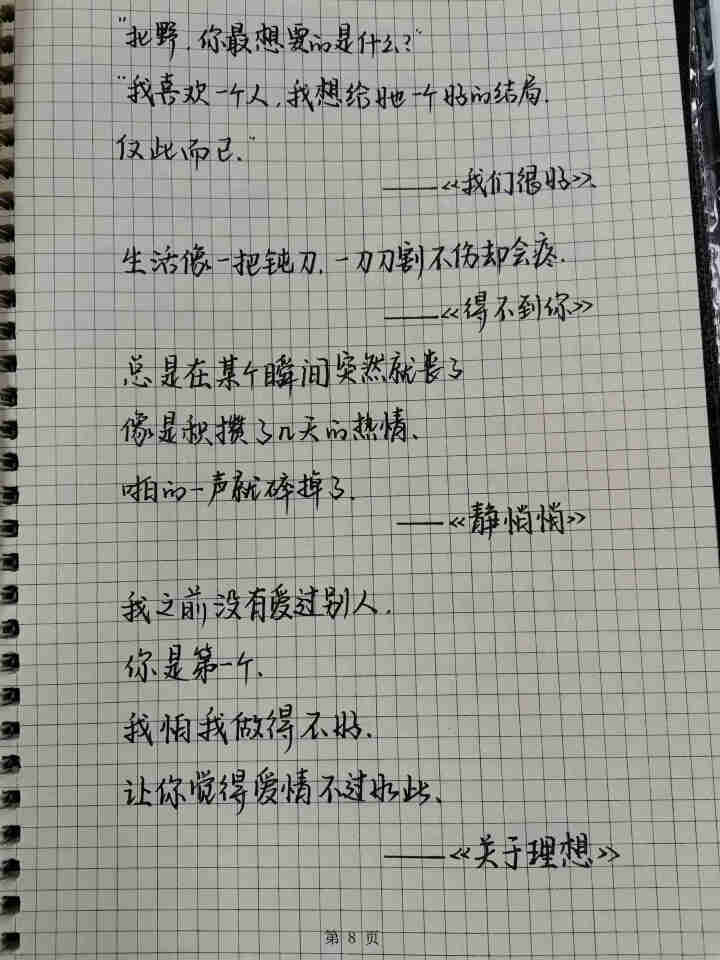 "北野,你最想要的是什么?"
"我喜欢一个人,我想给她一个好的结局.
仅此而已."
——《我们很好》
生活像一把钝刀,一刀刀割不伤却会疼.
——《得不到你》
总是在某个瞬间突然就丧了
像是积攒了几天的热情、
啪的一声就碎掉了.
——《静悄悄》
我之前没有爱过别人.
你是第一个、
我怕我做得不好.
让你觉得爱情不过如此、
——《关于理想》
第 8 页